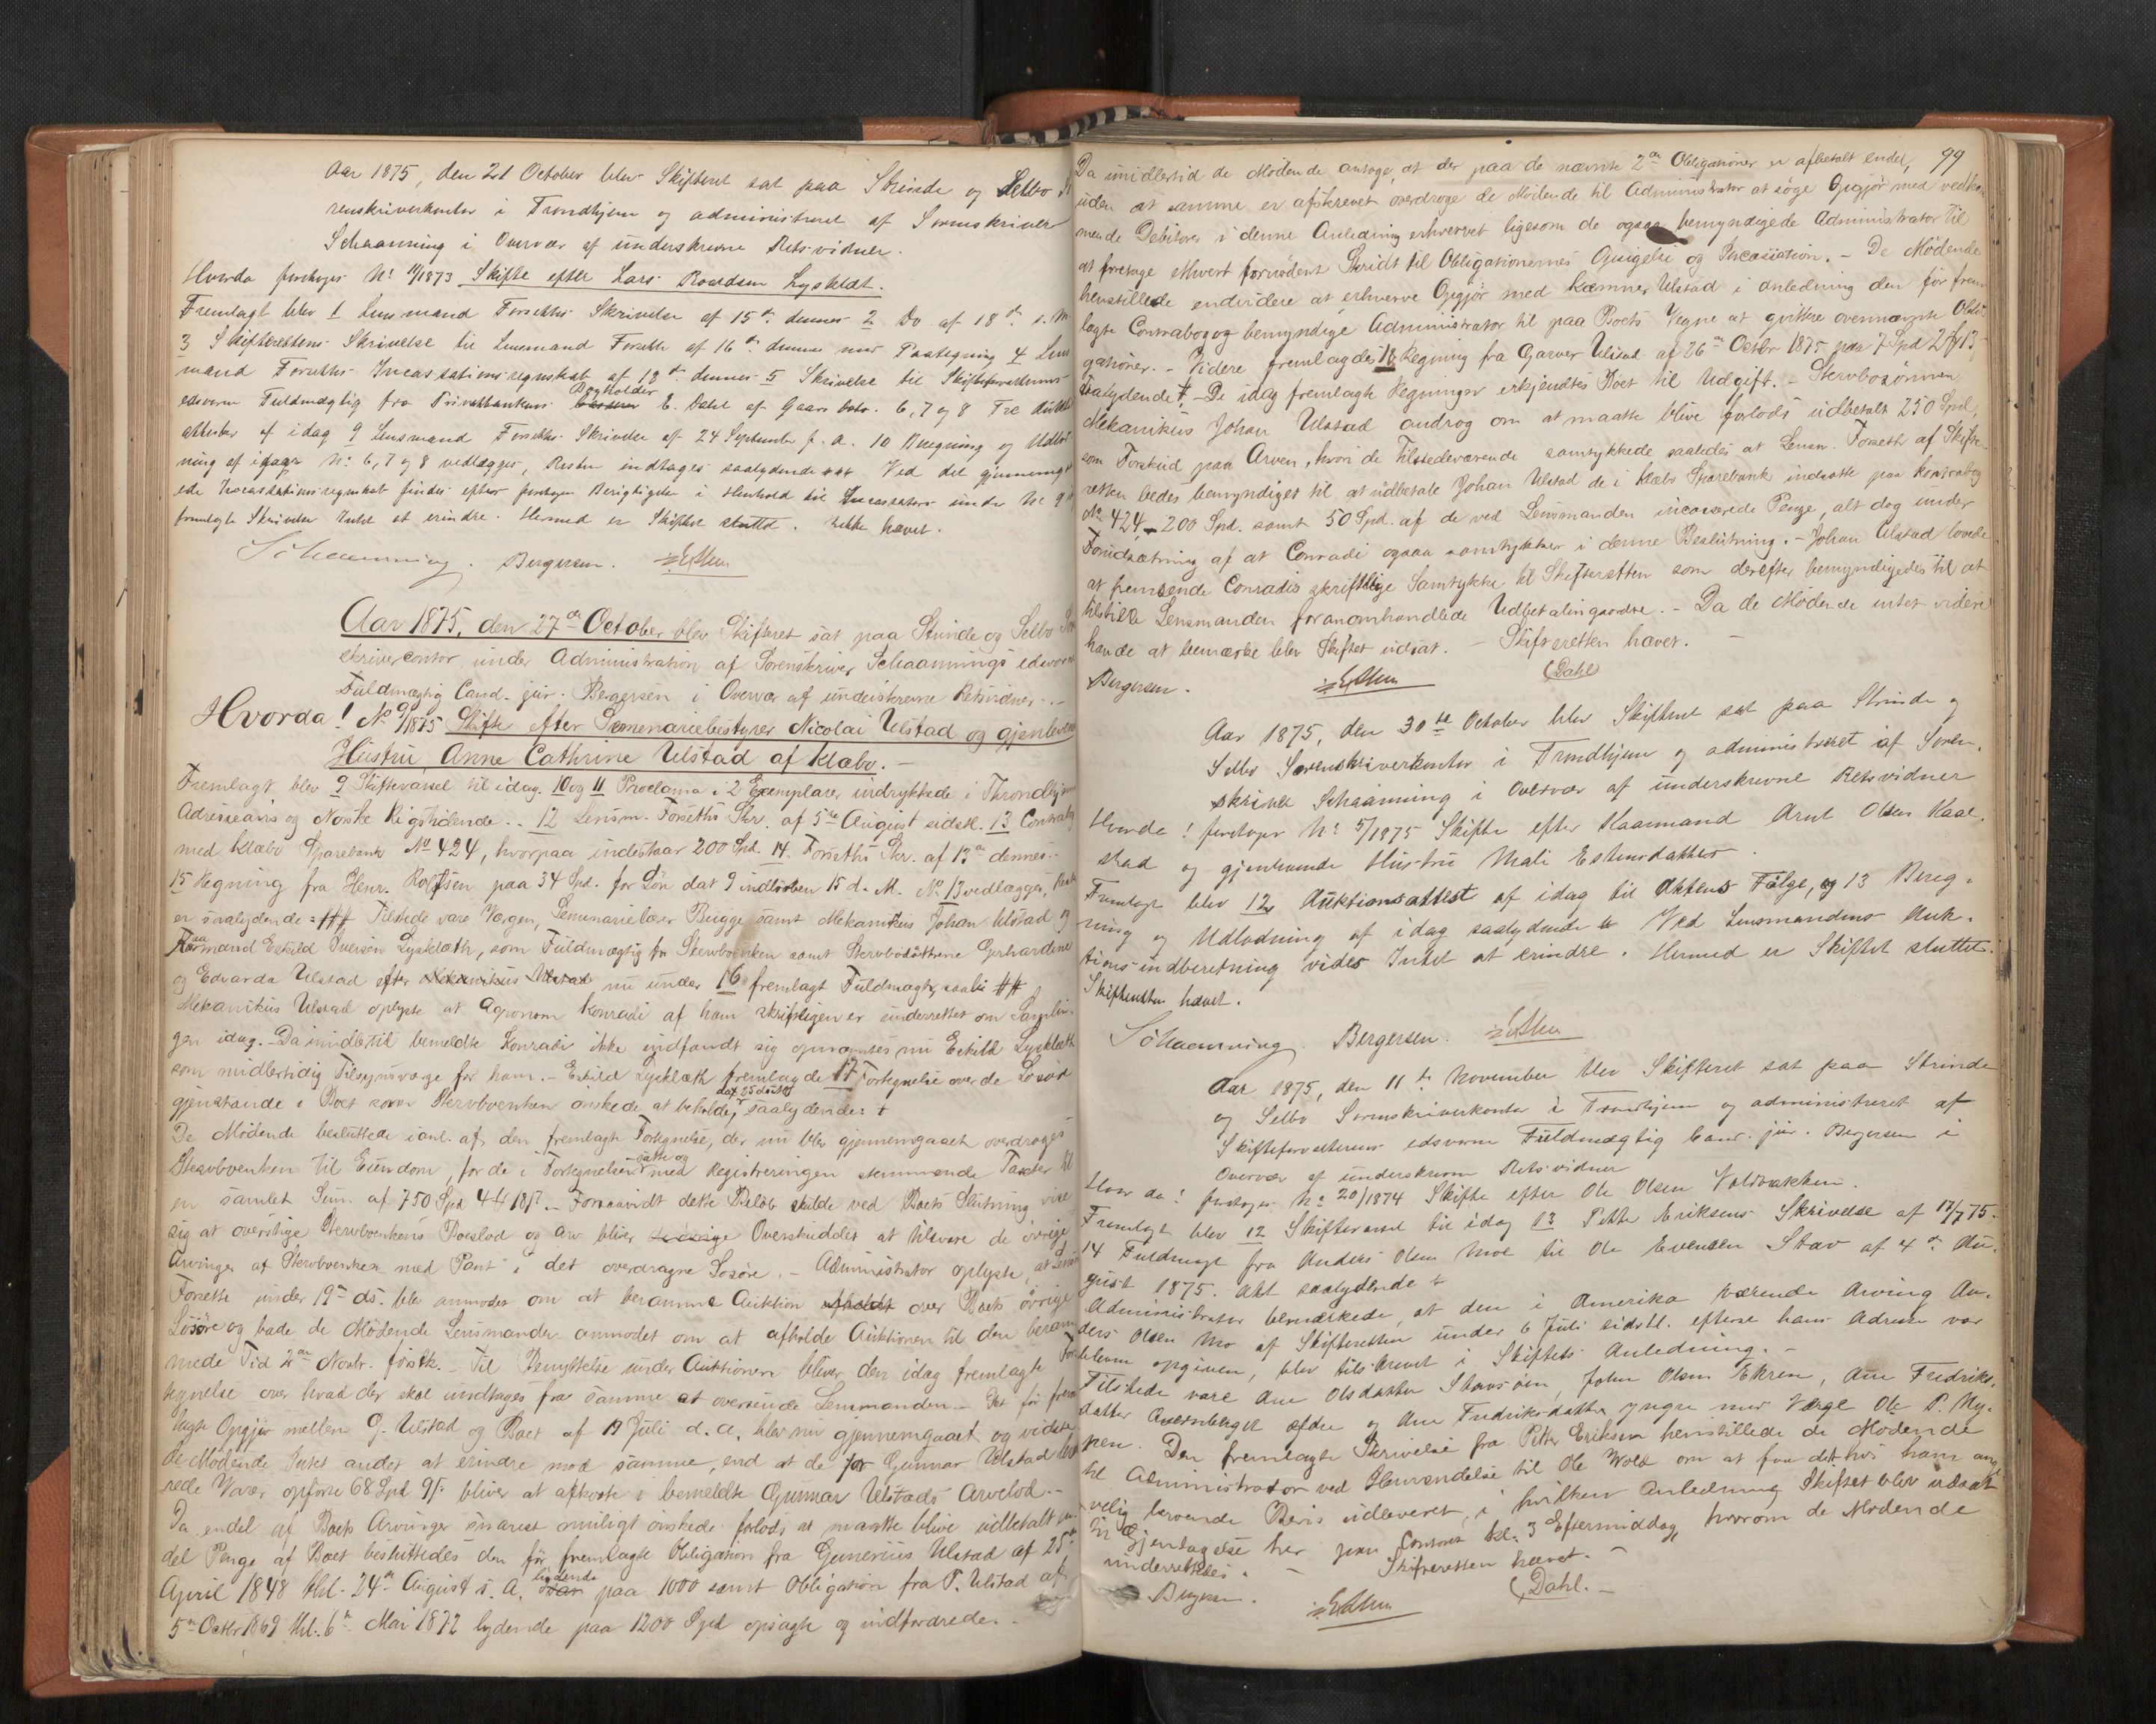 Aar 1875, den 21 October blev Skifteret sat paa Strinde og Selbo
renskriverkontor i Trondhjem og administreret af Sorenskriver
Schaanning i Overvær af underskrevne Retsvidner.
Hvorda foretoges No 11/1873 Skifte efter Lars Roaldsen Lysklæt.
Fremlagt blev 1 Lensmand Forseths Skrivelse af 15de dennes 2 Do af 18de
3 Skifterettens Skrivelse til Lensmand Forseth af 16de dennes med Paategning 4 Lens
mand Forseths Incassationsregnskab af 18de dennes 5 Skrivelse til Skifteforvalterens
edsvorne Fuldmægtig fra Privatbankens Bogholder E. Dahl af Gaars Dato. 6, 7 og 8 Tre Auktions
attester af idag 9 Lensmand Forseths Skrivelse af 24 September f. a. 10 Beregning og Udlod
ning af idag No 6, 7 og 8 vedlægges, Resten indtages saalydende Ved det gjennemgaa
ede Incassationsregnskab findes efter foretagen Berigtigelse i Henhold til Incassators under No 9
fremlagte Skrivelse Intet at erindre. Hermed er Skiftet sluttet. Retten hævet.
Schaanning. Bergersen.
Aar 1875, den 27de October blev Skifteret sat paa Strinde og Selbo
skrivercontor under Administration af Sorenskriver Schaannings edsvorne
Fuldmægtig Cand. jur. Bergersen i Overvær af underskrevne Retsvidner.
Hvorda! No 9/1875 Skifte efter Semenariebestyrer Nicolai Ulstad og gjenlevende
Hustru, Anne Cathrine Ulstad af Klæbo.
Fremlagt blev 9 Skiftevarsel til idag. 10 og 11 Proclama i 2 Exemplarer indrykkede i Throndhjems
Adresseavis og Norske Rigstidende. 12 Lensm. Forseths Skr. af 5te August sidstl. 13 Contrabog
med Klæbo Sparebank No 424, hvorpaa indestaar 200 Spd. 14. Forseths Skr. af 13de dennes.
15 Regning fra Henr. Rolfsen paa 34 Spd. for Løn dat 9 indløben 15 d. M. No 13 vedlægges, Resten
er saalydende: ### Tilstede vare Værgen, Semenarielærer Bugge samt Mekanikus Johan Ulstad og
Gaarmand Eskild Iversen Lysklæth, som Fuldmægtig for Stervboenken samt Stervbodøttrene Gerhardine
og Edvarda Ulstad efter Mekanikus Ulstad nu under 16 fremlagt Fuldmagt, saal: ##
Mekanikus Ulstad oplyste at Agronom Konradi af ham skriftligen er underrettet om Samlin-
gen idag. Da imidlertid bemeldte Konradi ikke indfandt sig opnævntes nu Eskild Lysklæth
som midlertidig Tilsynsværge for ham. Eskild Lysklæth fremlagde 17 Fortegnelse over de Løsøre
gjenstande i Boet som Stervboenken ønskede at beholde, dat 25 ds saalydende: +
De Mødende besluttede i anl. af den fremlagte Fortegnelse, der nu blev gjennemgaaet overdroges
Stervboenken til Eiendom, for de i Fortegnelsen satte og med Registreringen stemmende Taxter til
en samlet Sum af 750 Spd 4 18 s. Forsaavidt dette Beløb skulde ved Boets Slutning vise
sig at overstige Stervboenkens Boeslod og Arv bliver Overskuddet at tilsvare de øvrige
Arvinger af Stervboenken med Pant i det overdragne Løsøre. Administrator oplyste, at Lensm
Forseth under 19de ds. blev anmodet om at beramme Auktion afholdt over Boets øvrige
Løsøre og bade de Mødende Lensmanden anmodet om at afholde Auktionen til den beram
mede Tid 2den Novbr. førstk. Til Benyttelse under Auktionen bliver den idag fremlagte For
tegnelse over hvad der skal undtages fra samme at oversende Lensmanden. Det før frem
lagte Opgjør mellem G. Ulstad og Boet af 19 Juli d. a. blev nu gjennemgaaet og vidste
de Mødende Intet andet at erindre mod samme, end at de for Gunnar Ulstad
rede Varer opførte 68 Spd 9 s. bliver at afkorte i bemeldte Gunnar Ulstads Arvelod.
Da endel af Boets Arvinger snarest muligt ønskede forlods at maatte blive udbetalt en
del Penge af Boet besluttedes den før fremlagte Obligation fra Gunerius Ulstad af 25de
April 1848 thl. 24de August s. A. lydende paa 1000 samt Obligation fra P. Ulstad af
5te Octbr 1869 thl. 6te Mai 1872 lydende paa 1200 Spd opsagte og indfordrede.
99
Da imidlertid de Mødende antoge, at der paa de nævnte 2de Obligationer er afbetalt endel,
uden at samme er afskrevet overdroge de Mødende til Administrator at søge Opgjør med vedkom
mende Debitorer i denne Anledning erhvervet ligesom de ogsaa bemyndigede Administrator til
at foretage ethvert fornødent Skridt til Obligationernes Opsigelse og Incassation. - De Mødende
henstillede endvidere at erhverve Opgjør med Kæmner Ulstad i anledning den før frem
lagte Contrabog og bemyndige Administrator til paa Boets Vegne at qvittere ovennævnte Obli-
gationer. - Videre fremlagdes 18 Regning fra Garver Ulstad af 26de Octbr 1875 paa 7 Spd 2 13
saalydende +. - De idag fremlagte Regninger erkjendtes Boet til Udgift. - Stervbosønnen
Mekanikus Johan Ulstad androg om at maatte blive forlods udbetalt 250 Spd,
som Forskud paa Arven, hvori de Tilstedeværende samtykkede saaledes at Lensm. Forseth af Skifte-
retten bedes bemyndiget til at udbetale Johan Ulstad de i Klæbo Sparebank indsatte paa Kontrabog
No 424 - 200 Spd. samt 50 Spd. af de ved Lensmanden incasserede Penge, alt dog under
Forudsætning af at Conradi ogsaa samtykker i denne Beslutning. - Johan Ulstad lovede
at fremsende Conradis skriftlige Samtykke til Skifteretten som derefter bemyndigedes til at
tilstille Lensmanden foranomhandlede Udbetalingsordre. - Da de Mødende intet videre
havde at bemærke blev Skiftet udsat. - Skifteretten hævet. -
Bergersen. Dahl
Aar 1875, den 30te October blev Skifteret sat paa Strinde og
Selbo Sorenskriverkontor i Trondhjem og administreret af Soren.
skriver Schaanning i Overvær af underskrevne Retsvidner
Hvorda! foretoges No 5/1875 Skifte efter Kaarmand Arnt Olsen Kaal.
stad og gjenlevende Hustru Mali Estensdatter.
Fremlagt blev 12 Auktionsattest af idag til Aktens Følge, og 13 Bereg.
ning og Udlodning af idag saalydende Ved Lensmandens Auk.
tions indberetning vides Intet at erindre. Hermed er Skiftet sluttet.
Skifteretten hævet.
Schaanning. Bergersen.
Aar 1875, den 11te November blev Skifteret sat paa Strinde
og Selbo Sorenskriverkontor i Trondhjem og administreret af
Skifteforvalterens edsvorne Fuldmægtig Cand. jur. Bergersen i
Overvær af underskrevne Retsvidner
Hvor da! foretoges No 20/1874 Skifte efter Ole Olsen Voldbakken.
Fremlagt blev 12 Skiftevarsel til idag 13 Petter Eriksens Skrivelse af 17/7 75.
14 Fuldmagt fra Anders Olsen Moe til Ole Evensen Stav af 4de Au.
gust 1875. alt saalydende +
Administrator bemærkede, at den i Amerika værende Arving An.
ders Olsen Mo af Skifteretten under 6 Juli sidstl. efterat hans Adresse var
bleven opgiven, blev tilskrevet i Skiftets Anledning. -
Tilstede vare Ane Olsdatter Stavsøien, John Olsen Ekren, Ane Fredriks.
datter ældre og Ane Fredriksdatter yngre med Værge Ole P. My.
ren. Den fremlagte Skrivelse fra Petter Eriksen henstillede de Mødende
til Administrator ved Henvendelse til Ole Wold om at faa det hos ham
velig beroende Bevis udleveret, i hvilken Anledning Skiftet blev udsat
til Gjentagelse her paa Contoret kl. 3 Eftermiddag, hvorom de Mødende
underrettedes. - Skifteretten hævet. -
Bergersen. Dahl. -